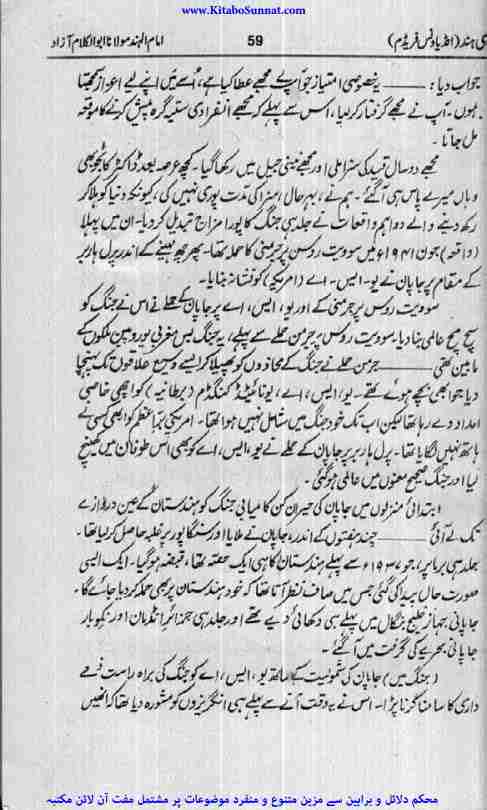 www.KitaboSunnat.com
ی ہند (انڈیا ونس فریڈم) 59 امام الہند مولانا ابوالکلام آزاد
جواب دیا: ـــــــ یہ خصوصی امتیاز جو آپ نے مجھے عطا کیا ہے، اُسے میں اپنے لیے اعزاز سمجھتا
ہوں۔ آپ نے مجھے گرفتار کر لیا، اس سے پہلے کہ مجھے انفرادی ستیہ گرہ پیش کرنے کا موقعہ
مل جاتا۔
مجھے دو سال قید کی سزا ملی اور مجھے نینی جیل میں رکھا گیا۔ کچھ عرصہ بعد ڈاکٹر کاٹجو بھی
وہاں میرے پاس ہی آ گئے۔ ہم نے، بہرحال، سزا کی مدت پوری نہیں کی، کیونکہ دنیا کو ہلا کر
رکھ دینے والے دو اہم واقعات نے جلد ہی جنگ کا پورا مزاج تبدیل کر دیا۔ ان میں پہلا
(واقعہ) جون ۱۹۴۱ء میں سوویت روس پر جرمنی کا حملہ تھا۔ پھر چھ مہینے کے اندر پرل ہاربر
کے مقام پر جاپان نے یو۔ ایس۔ اے (امریکہ) کو نشانہ بنایا۔
سوویت روس پر جرمنی کے اور یو، ایس، اے پر جاپان کے حملے نے اس نے جنگ کو
سچ مچ عالمی بنا دیا۔ سوویت روس پر جرمن حملے سے پہلے، یہ جنگ بس مغربی یوروپین ملکوں کے
مابین تھی ـــــــ جرمن حملے نے جنگ کے محاذوں کو پھیلا کر ایسے وسیع علاقوں تک پہنچا
دیا جو ابھی بچے ہوئے تھے۔ یو، ایس، اے، یونائیٹڈ کنگڈم (برطانیہ) کو اچھی خاصی
امداد دے رہا تھا لیکن اب تک خود جنگ میں شامل نہیں ہوا تھا۔ امریکی براعظم کو ابھی کسی نے
ہاتھ نہیں لگایا تھا۔ پرل ہاربر پر جاپان کے حملے نے یو، ایس، اے کو بھی اس طوفان میں کھینچ
لیا اور جنگ صحیح معنوں میں عالمی ہو گئی۔
ابتدائی منزلوں میں جاپان کی حیران کن کامیابی جنگ کو ہندستان کے عین دروازے
تک لے آئی ـــــــ چند ہفتوں کے اندر، جاپان نے ملایا اور سنگاپور پر غلبہ حاصل کر لیا تھا۔
جلد ہی برما پر، جو ۱۹۳۷ء سے پہلے ہندستان کا ہی ایک حصّہ تھا، قبضہ ہو گیا۔ ایک ایسی
صورت حال پیدا کی گئی جس میں صاف نظر آتا تھا کہ خود ہندستان پر بھی حملہ کر دیا جائے گا۔
جاپانی جہاز خلیج بنگال میں پہلے ہی دکھائی دیے تھے اور جلد ہی جزائر انڈمان اور نکوبار
جاپانی بحریے کی گرفت میں آ گئے۔
(جنگ میں) جاپان کی شمولیت کے ساتھ یو، ایس، اے کو جنگ کی براہ راست ذمے
داری کا سامنا کرنا پڑا۔ اس نے یہ وقت آنے سے پہلے ہی انگریزوں کو مشورہ دیا تھا کہ انھیں
محکم دلائل و براہین سے مزین متنوع و منفرد موضوعات پر مشتمل مفت آن لائن مکتبہ